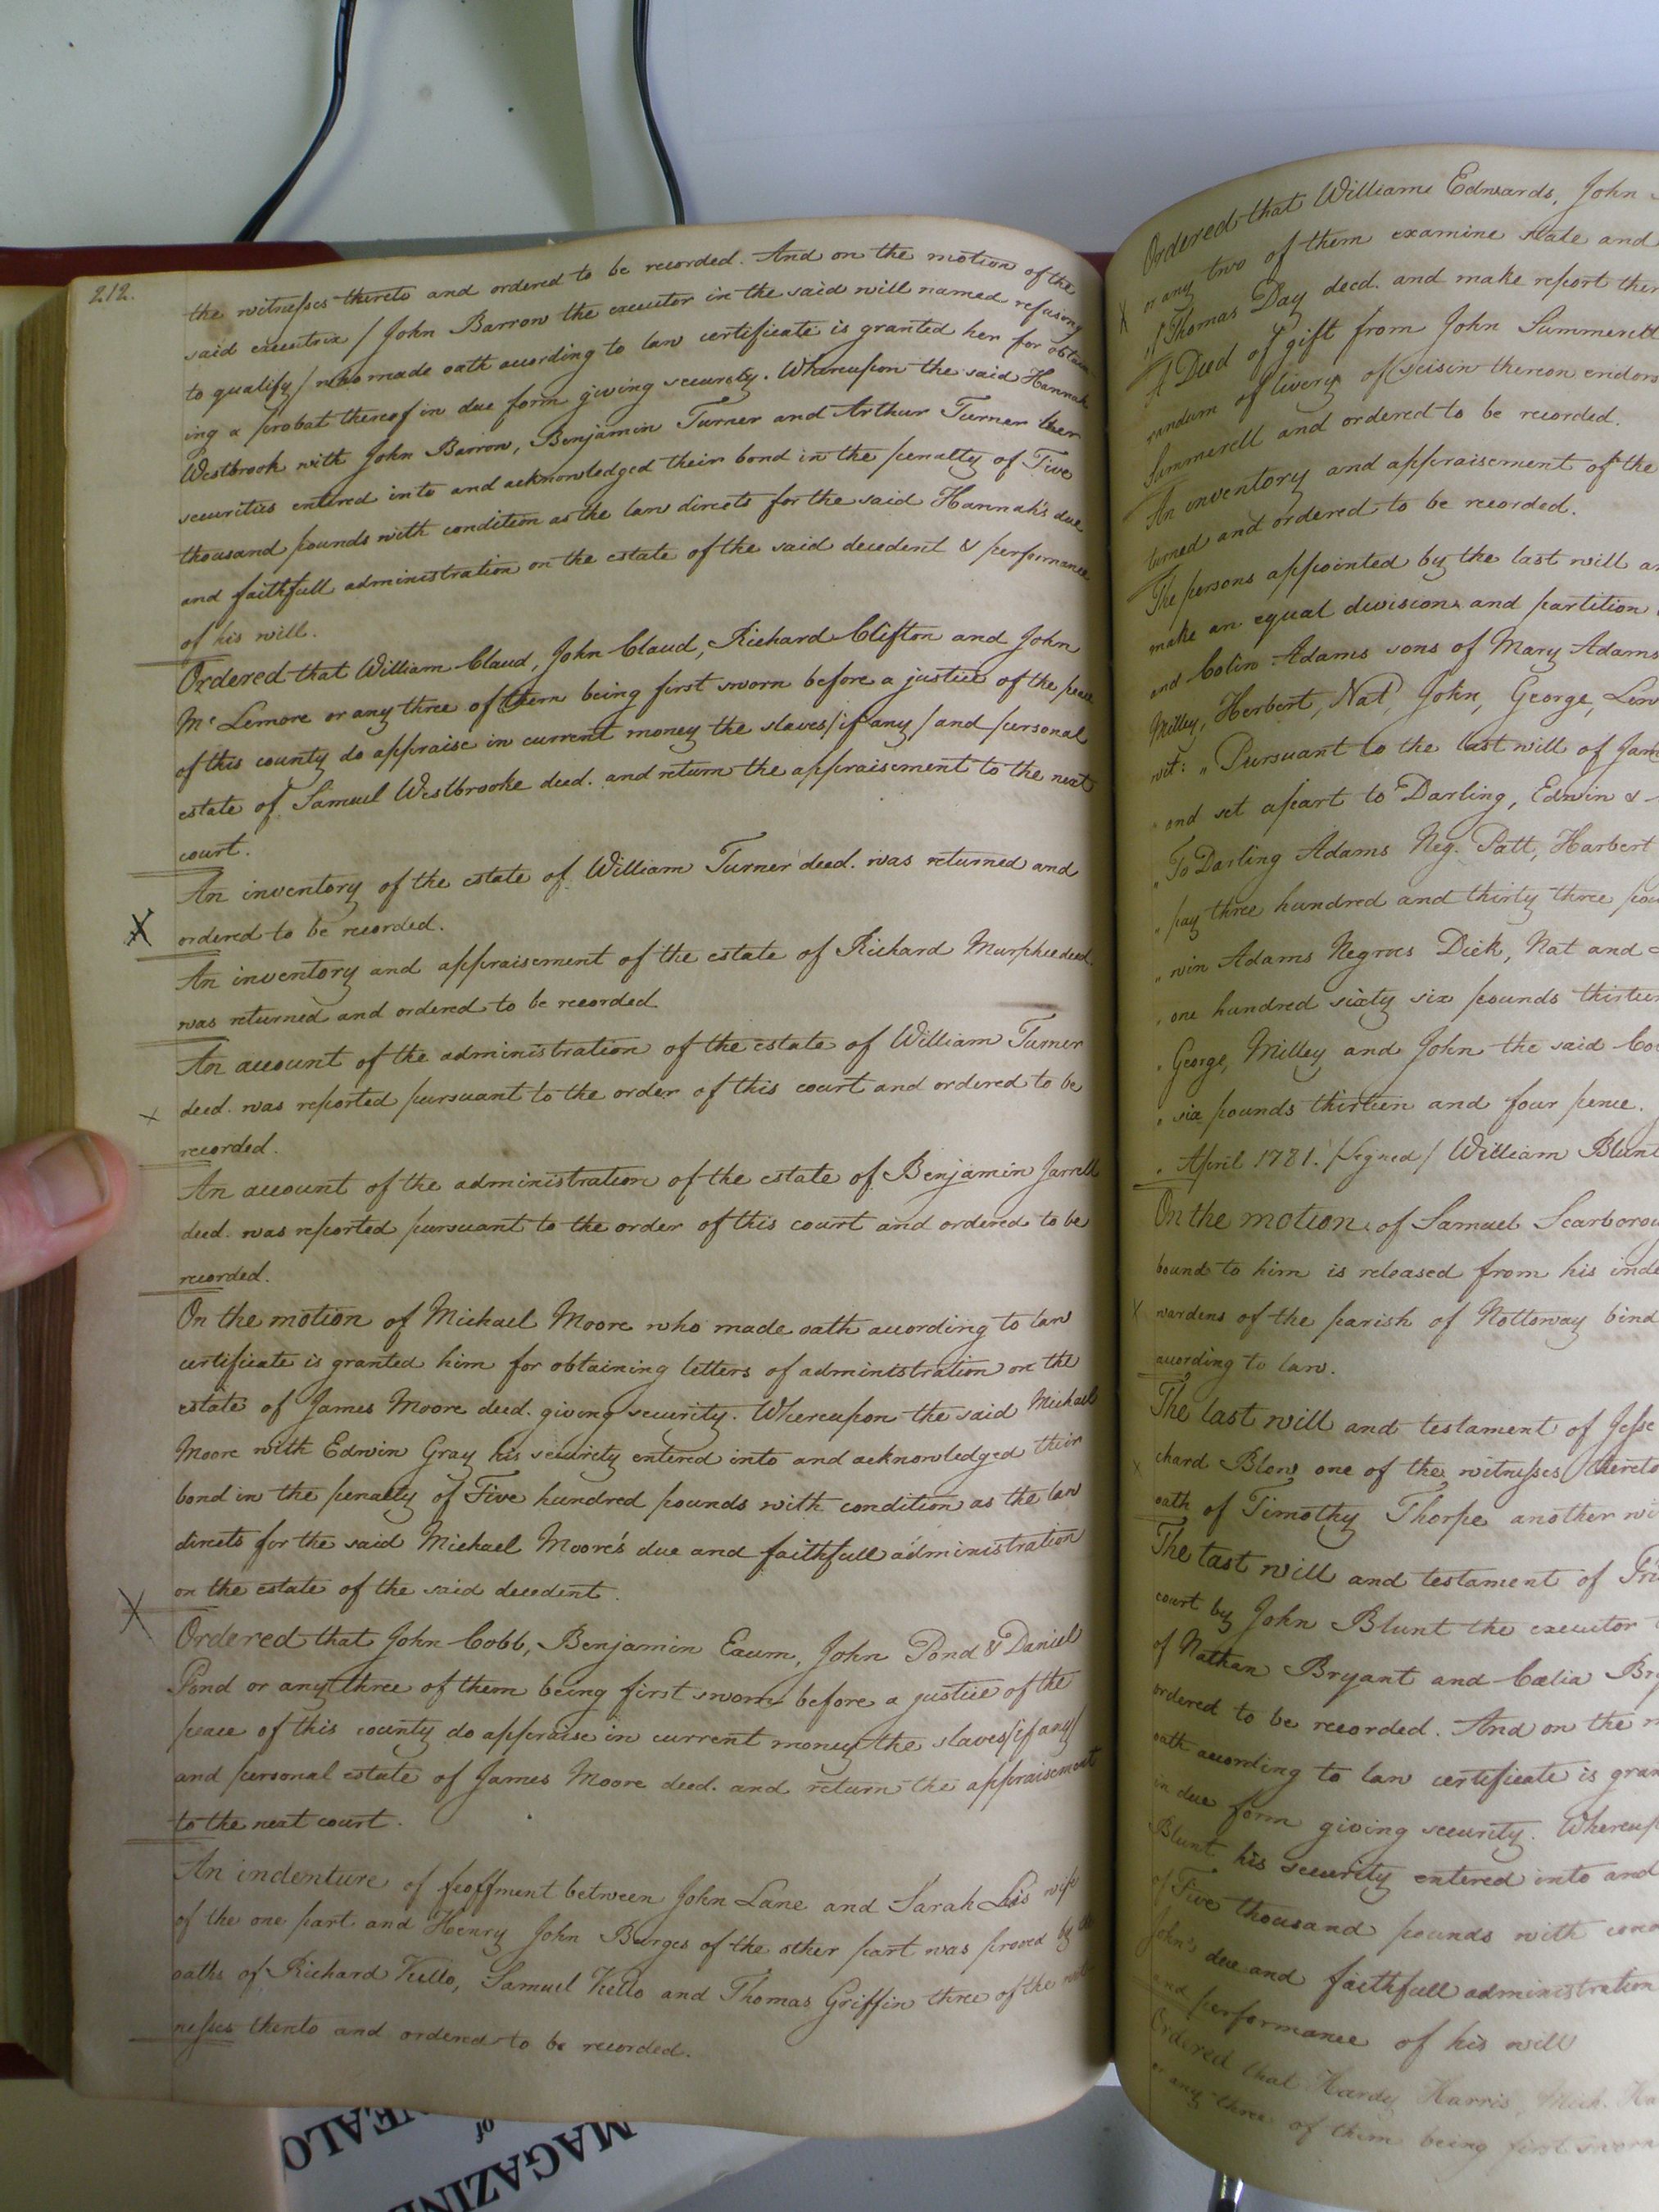 212.
the witnesses thereto and ordered to be recorded. And on the motion of the
said executrix / John Barrow the executor in the said will named refusing
to qualify / who made oath according to law certificate is granted her for obtain-
ing a probat thereof in due form giving security. Whereupon the said Hannah
Westbrook with John Barrow, Benjamin Turner and Arthur Turner her
securities entered into and acknowledged their bond in the penalty of Five
thousand pounds with condition as the law directs for the said Hannah's due
and faithfull administration on the estate of the said decedent & performance
of his will.
Ordered that William Claud, John Claud, Richard Clifton and John
Mc Lemore or any three of them being first sworn before a justice of the peace
of this county do appraise in current money the slaves / if any / and personal
estate of Samuel Westbrooke decd. and return the appraisement to the next
court.
An inventory of the estate of William Turner decd. was returned and
X ordered to be recorded.
An inventory and appraisement of the estate of Richard Murphee decd.
was returned and ordered to be recorded
An account of the administration of the estate of William Turner
x decd. was reported pursuant to the order of this court and ordered to be
recorded.
An account of the administration of the estate of Benjamin Jarrell
decd. was reported pursuant to the order of this court and ordered to be
recorded.
On the motion of Michael Moore who made oath according to law
certificate is granted him for obtaining letters of administration on the
estate of James Moore decd. giving security. Whereupon the said Michael
Moore with Edwin Gray his security entered into and acknowledged their
bond in the penalty of Five hundred pounds with condition as the law
directs for the said Michael Moore's due and faithfull administration
X on the estate of the said decedent.
Ordered that John Cobb, Benjamin Exum, John Pond & Daniel
Pond or any three of them being first sworn before a justice of the
peace of this county do appraise in current money the slaves / if any /
and personal estate of James Moore decd. and return the appraisement
to the next court.
An indenture of feoffment between John Lane and Sarah his wife
of the one part and Henry John Burges of the other part was proved by the
oaths of Richard Kello, Samuel Kello and Thomas Griffin three of the wit-
nesses thereto and ordered to be recorded.
Ordered that William Edwards, John
X or any two of them examine state and
of Thomas Day decd. and make report ther
A Deed of gift from John Summerell
randum of livery of seisin thereon endors
Summerell and ordered to be recorded.
An inventory and appraisement of the
turned and ordered to be recorded.
The persons appointed by the last will an
make an equal division and partition
and Colin Adams sons of Mary Adams
Milley, Herbert, Nat, John, George, Lew
wit: " Pursuant to the last will of Jam
" and set apart to Darling, Edwin &
" To Darling Adams Neg. Patt, Harbert
" pay three hundred and thirty three pou
" win Adams Negroes Dick, Nat and
" one hundred sixty six pounds thirteen
" George, Milley and John the said Co
" six pounds thirteen and four pence.
" April 1781. /Signed/ William Blunt
On the motion of Samuel Scarborou
bound to him is released from his inde
X wardens of the parish of Nottoway bind
according to law.
The last will and testament of Jesse
x chard Blow one of the witnesses thereto
oath of Timothy Thorpe another wi
The last will and testament of Pri
court by John Blunt the executor
of Nathan Bryant and Cælia Bry
ordered to be recorded. And on the m
oath according to law certificate is gran
in due form giving security. Whereup
Blunt his security entered into and
of Five thousand pounds with cond
John's due and faithfull administration
and performance of his will
Ordered that Hardy Harris, Mich. Ha
or any three of them being first sworn
MAGAZINE
of
NEALO